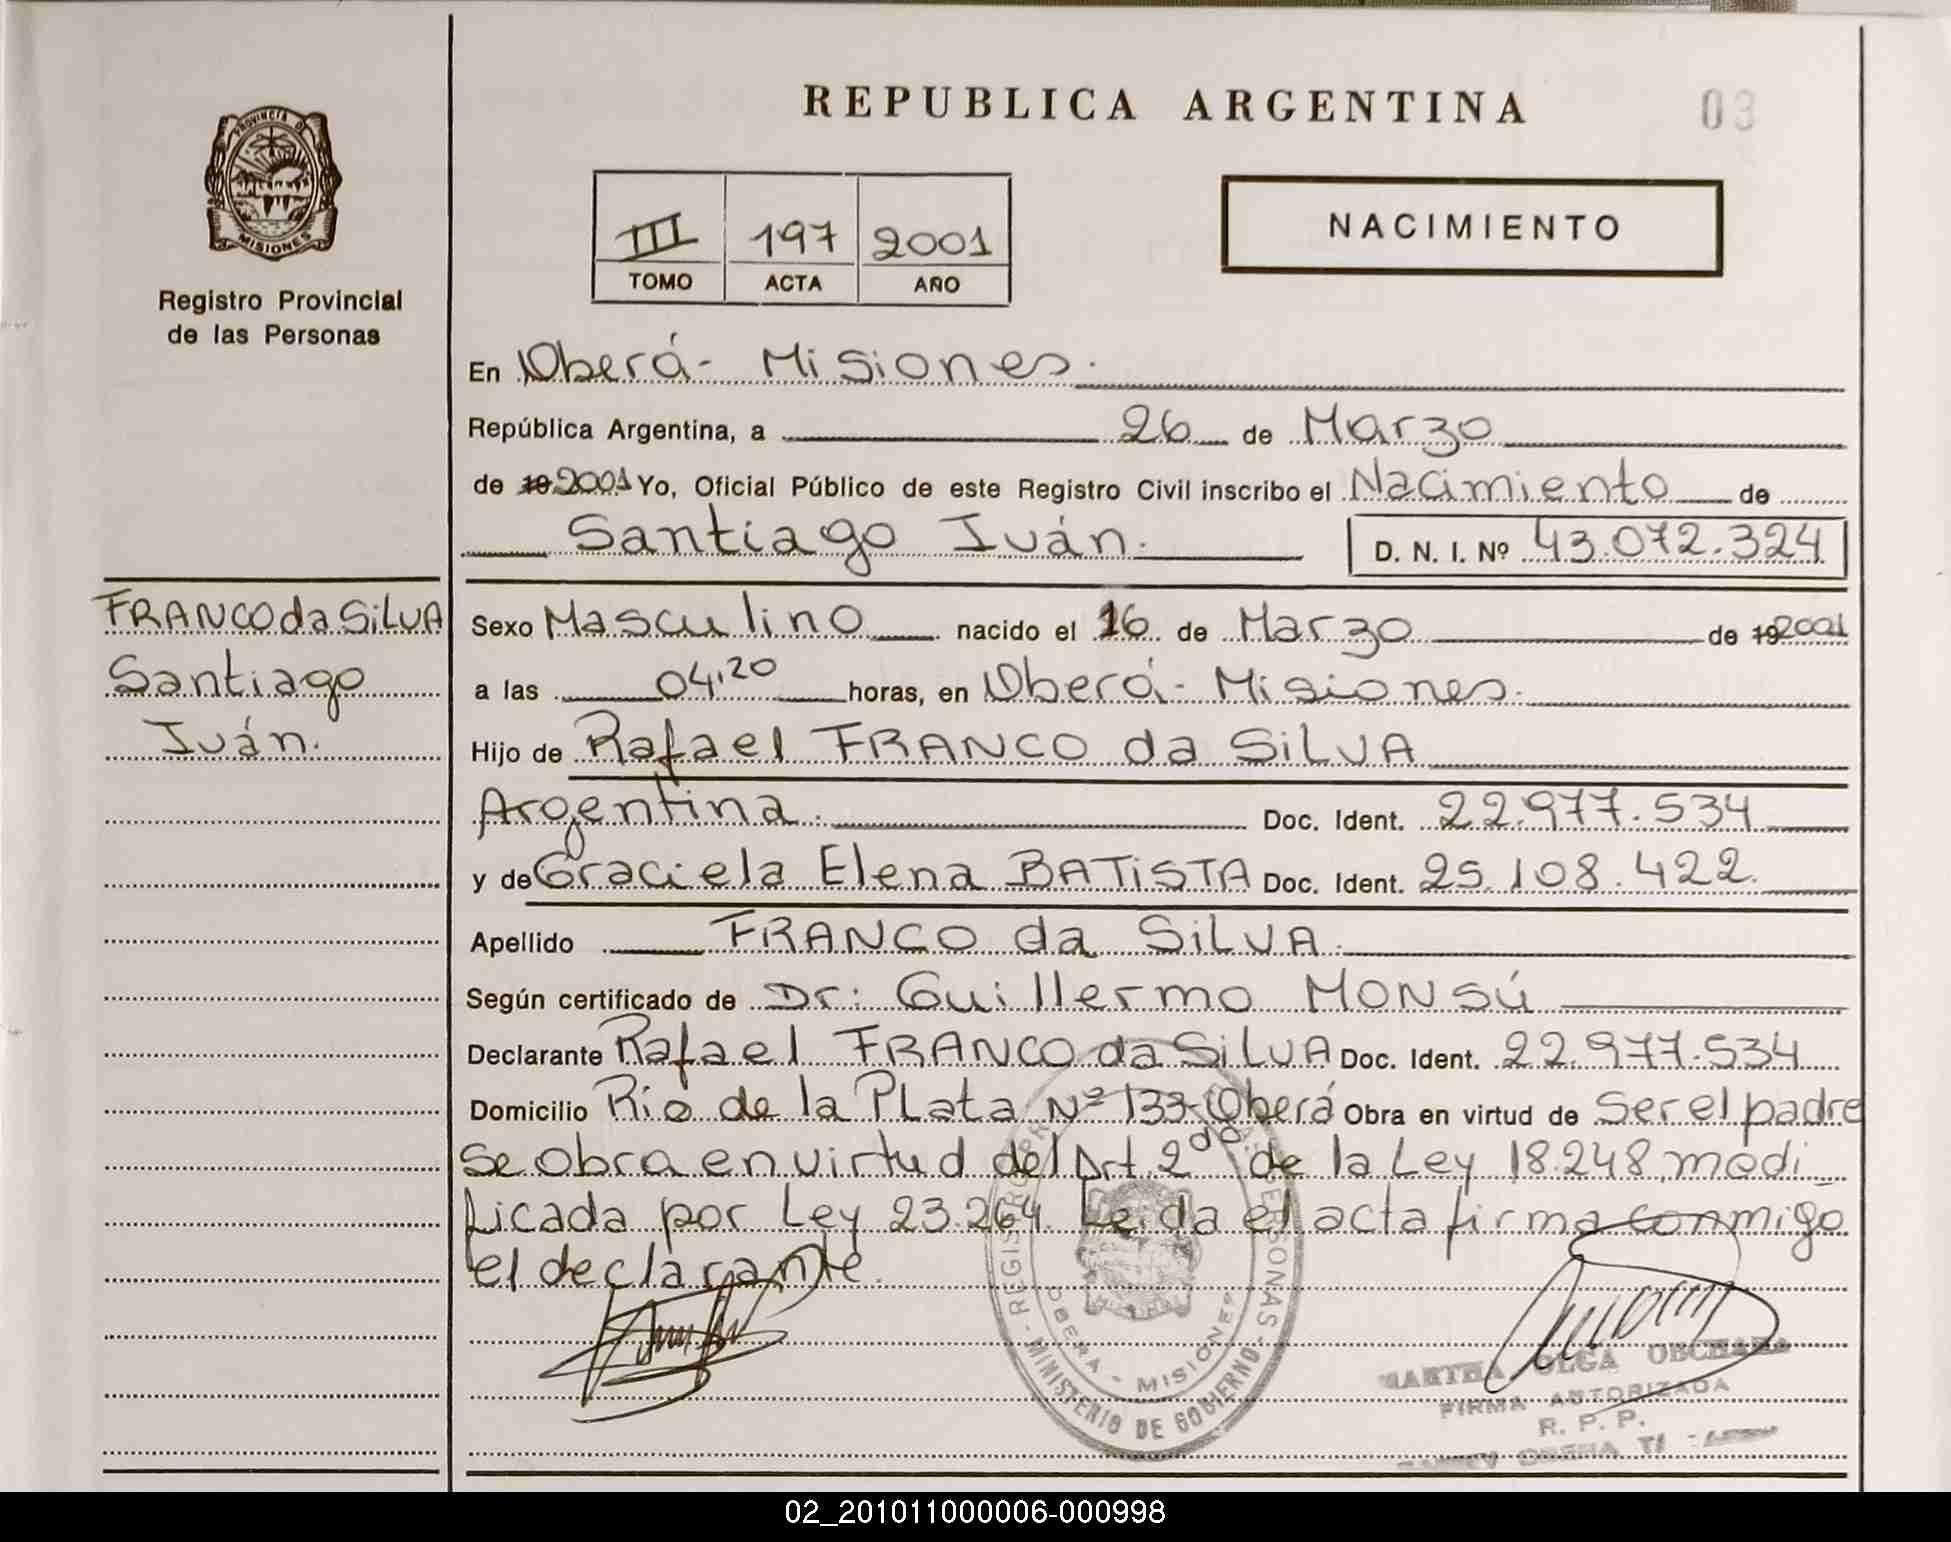 REPUBLICA ARGENTINA
03
PROVINCIA DE
MISIONES
Registro Provincial
de las Personas
III 197 2001
TOMO ACTA AÑO
NACIMIENTO
En Oberá- Misiones.
República Argentina, a 26 de Marzo
de 19 2001 Yo, Oficial Público de este Registro Civil inscribo el Nacimiento de
Santiago Iván. D. N. I. Nº 43.072.324
FRANCO da SiLVA
Santiago
Iván.
Sexo Masculino nacido el 16 de Marzo de 19 2001
a las 04,20 horas, en Oberá- Misiones.
Hijo de Rafael FRANCO da SiLVA
Argentina. Doc. Ident. 22.977.534
y de Graciela Elena BATiSTA Doc. Ident. 25.108.422.
Apellido FRANCO da SiLVA.
Según certificado de Dr: Guillermo MONSÚ
Declarante Rafael FRANCO da SiLVA Doc. Ident. 22.977.534
Domicilio Rio de la PLata Nº 133-Oberá Obra en virtud de Ser el padre
Se obra en virtud del Art. 2do de la Ley 18.248 modi
ficada por Ley 23.264. Leida el acta firma conmigo
el declarante.
REGISTRO PERSONAS
OBERA - MISIONES
MINISTERIO DE GOBIERNO
MARTHA OLGA
FIRMA AUTORIZADA
R. P. P.
02_201011000006-000998